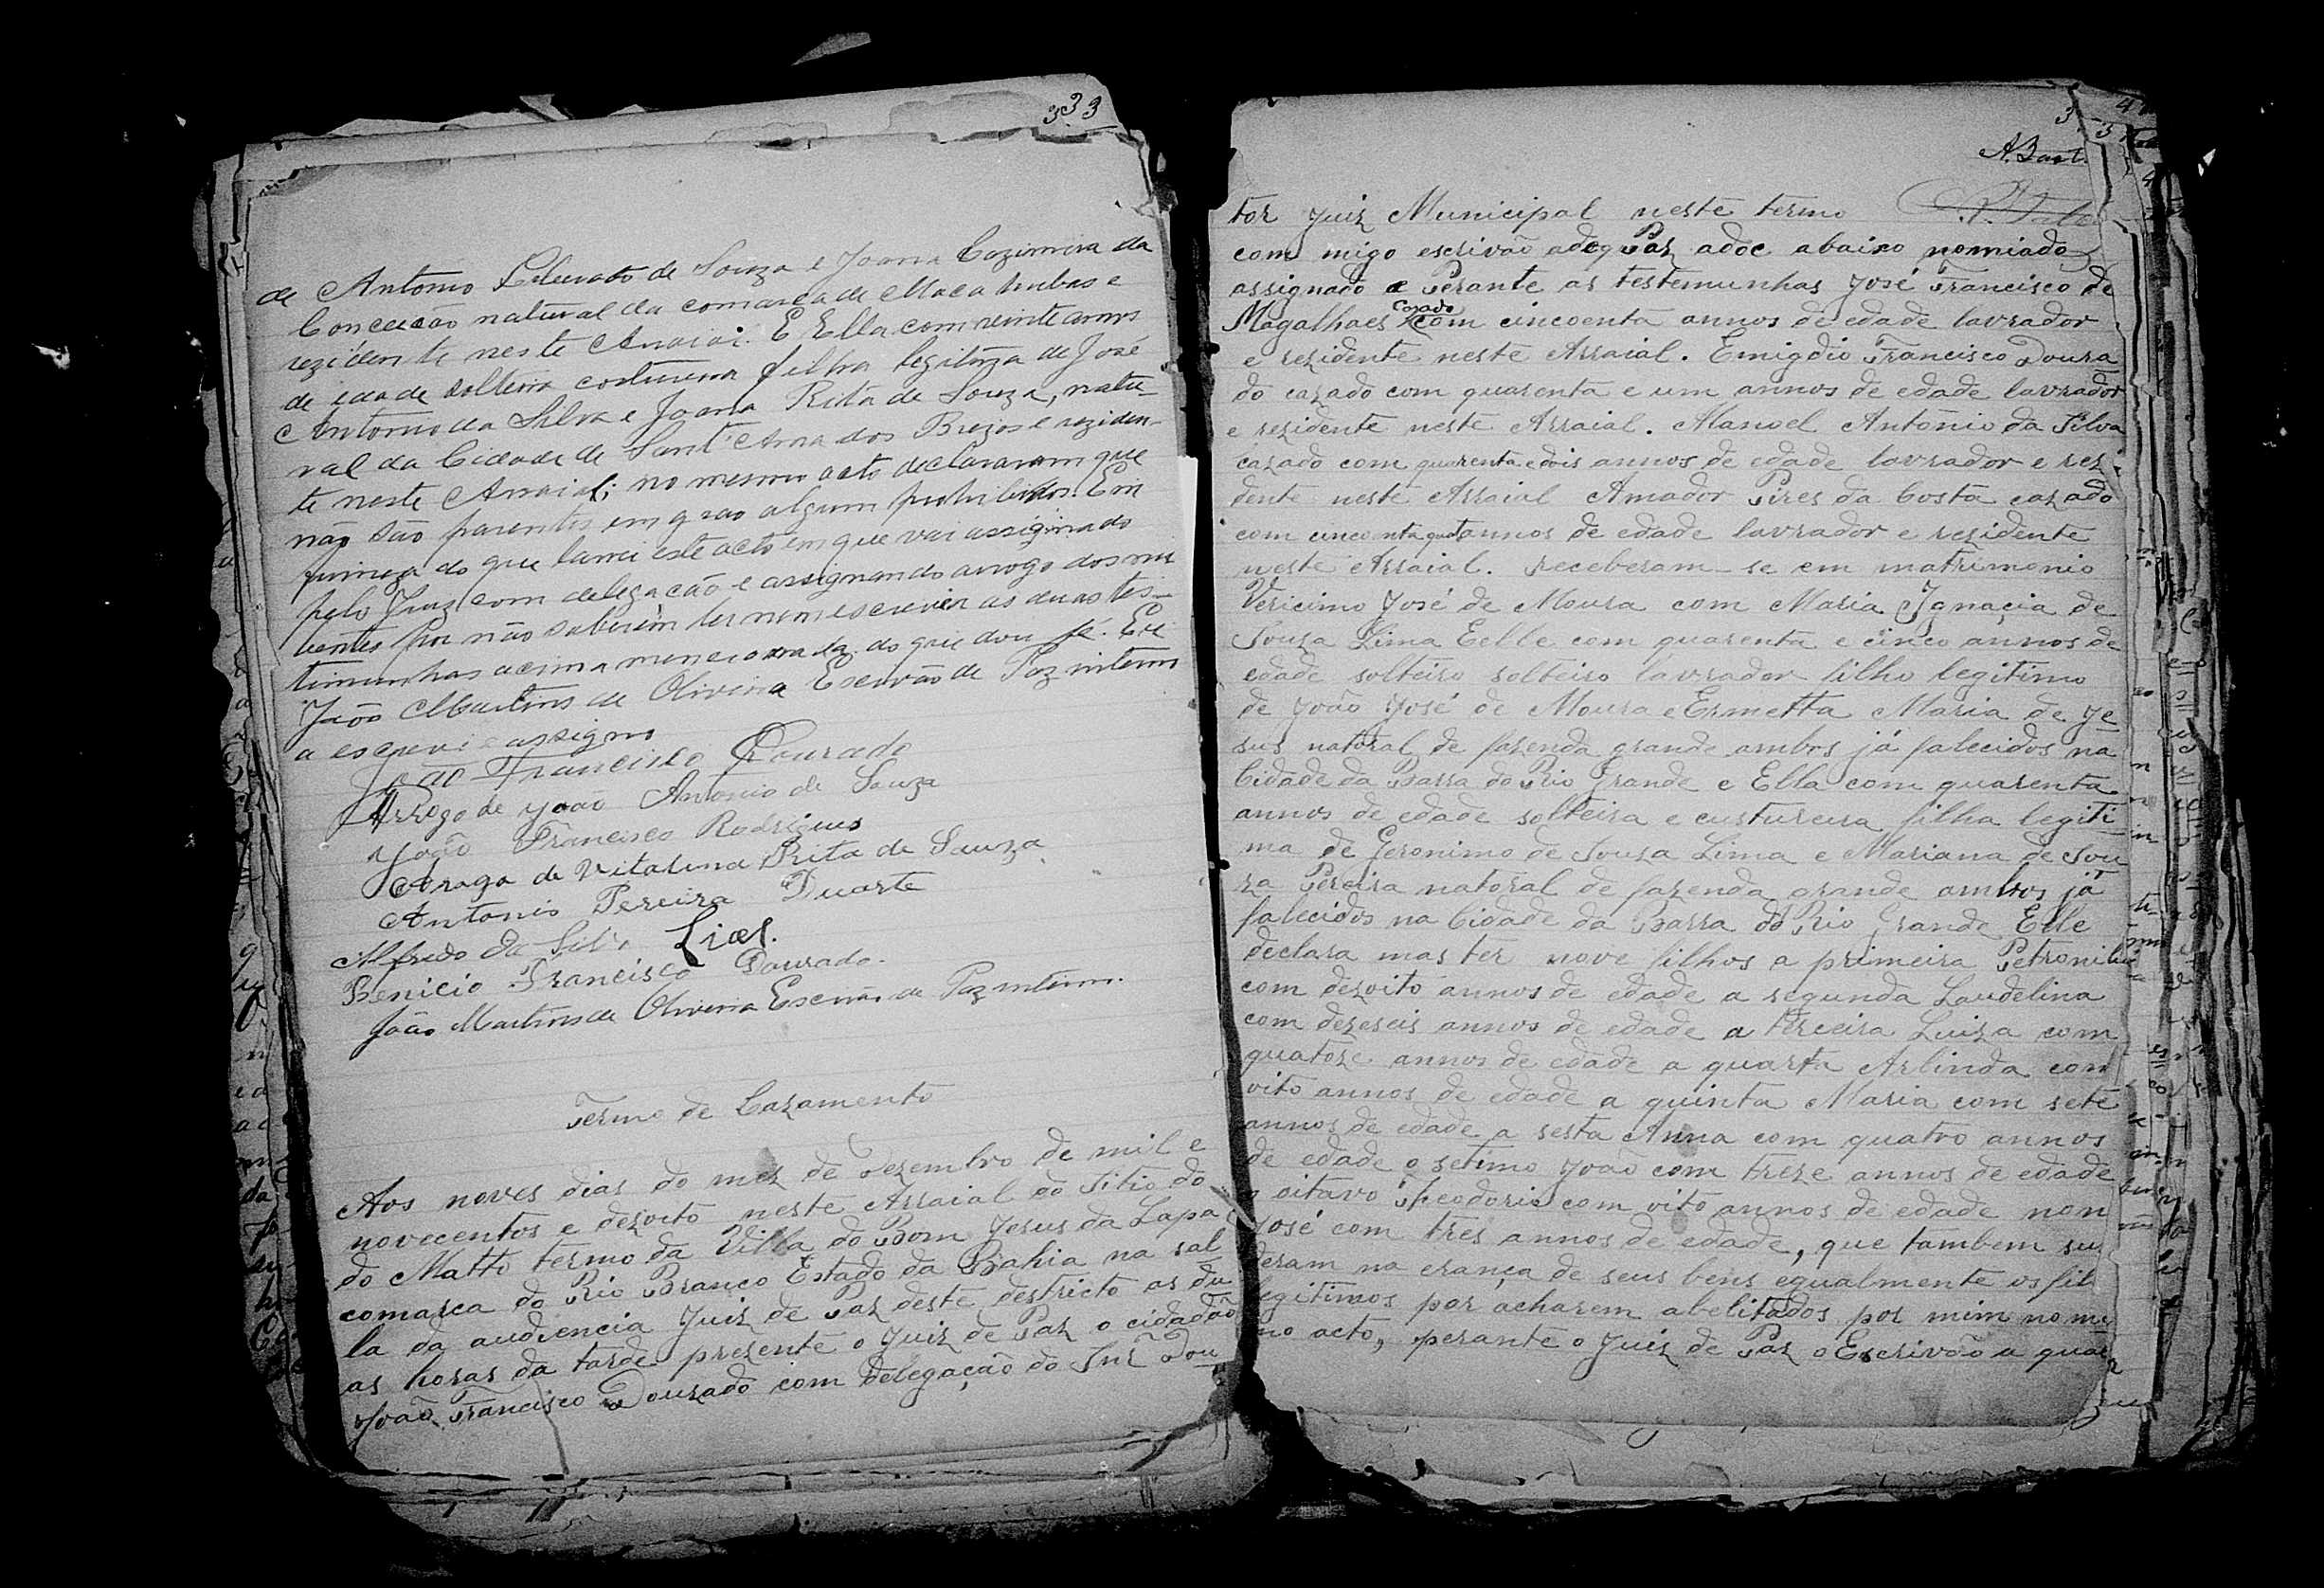 333
de Antonio Liberato de Souza e Joana Cazimira da
Conceicão natural da comarca de Macahubas e
rezidente neste Arraial. E Ella com vinte annos
de idade solteira costureira filha legitima de José
Antonio da Silva e Joana Rita de Souza, natu-
ral da Cidade de Sant'Anna dos Brejos e reziden-
te neste Arraial; no mesmo acto declararam que
não são parentes em grao algum prohibidos. Em
firmeza do que lavrei este acto em que vai assignado
pelo Juiz com delegacão e assignando arrogo dos nu
bentes por não saberem ler nem escrever as duas tes-
timunhas acima mencionada do que dou fé. Eu
João Martins de Oliveira Escrivão de Paz interino
a escrevi e assigno
João Francisco Dourado
Arrogo de João Antonio de Souza
João Francisco Rodrigues
Arogo de Vitalina Rita de Souza
Antonio Pereira Duarte
Alfredo da Silva Lial.
Benicio Francisco Dourado.
João Martins de Oliveira Escrivão de Paz interino.
Termo de Cazamento
Aos noves dias do mez de Dezembro de mil e
novecentos e dezoito neste Arraial do Sitio do
do Matto termo da Villa do Bom Jesus da Lapa
comarca do Rio Branco Estado da Bahia na sal
la da audiencia Juiz de Paz deste destricto as du
as horas da tarde prezente o Juiz de Paz o cidadão
João Francisco Dourado com delegação do Snr Dou
A. Bast.
tor Juiz Municipal neste termo
com migo escrivão adoq Paz adoc abaixo nomiado
assignado e Perante as testemunhas José Francisco de
Magalhaes cazado com cincoenta annos de edade lavrador
e rezidente neste Arraial. Emigdio Francisco Doura
do cazado com quarenta e um annos de edade lavrador
e rezidente neste Arraial. Manoel Antonio da Silva
cazado com quarenta e dois annos de edade lavrador e rezi
dente neste Arraial Amador Pires da Costa cazado
com cincoenta annos de edade lavrador e rezidente
neste Arraial. receberam-se em matrimonio
Vericimo José de Moura com Maria Ignacia de
Souza Lima Eelle com quarenta e cinco annos de
edade solteiro solteiro lavrador filho legitimo
de João José de Moura e Ermetta Maria de Je
sus natoral de fazenda grande ambos já falecidos na
Cidade da Barra do Rio Grande e Ella com quarenta
annos de edade solteira e custureira filha legiti
ma de Jeronimo de Souza Lima e Mariana de Sou
za Pereira natoral de fazenda grande ambos já
falecidos na Cidade da Barra do Rio Grande Elle
declara mas ter nove filhos a primeira Petronilia
com dezoito annos de edade a segunda Laudelina
com dezeseis annos de edade a terceira Luiza com
quatoze annos de edade a quarta Arlinda com
oito annos de edade a quinta Maria com sete
annos de edade a sesta Anna com quatro annos
de edade o setimo João com treze annos de edade
o oitavo Theodorio com oito annos de edade non
José com tres annos de edade, que tambem su
deram na erança de seus bens egualmente os fil
legitimos por acharem abelitados por mim no me
mo acto, perante o Juiz de Paz o Escrivão a qual